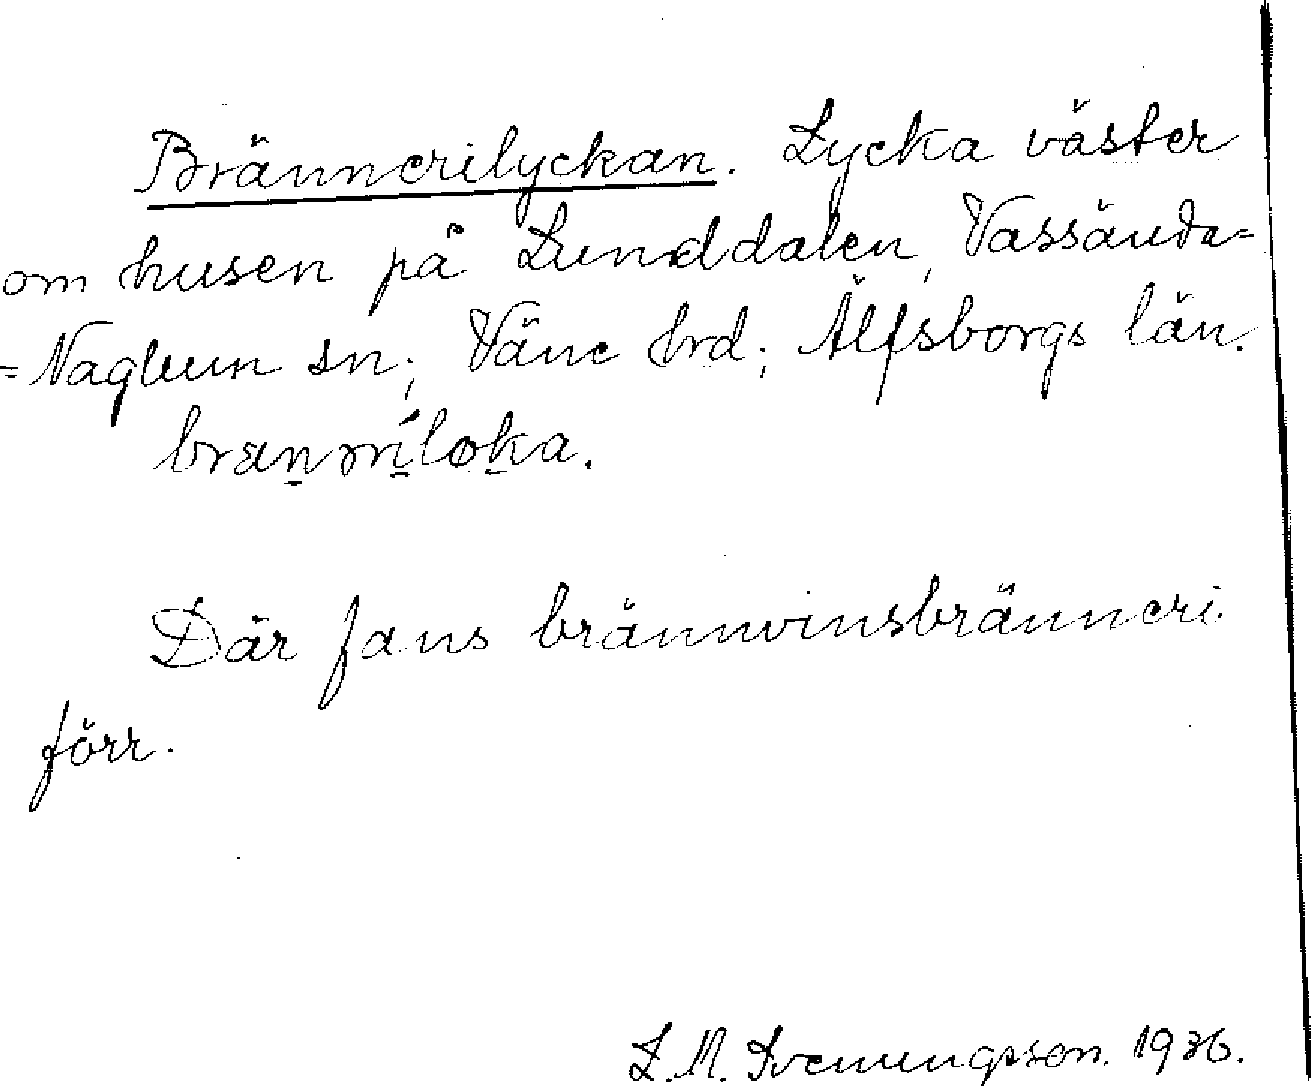 Brännerilyckan. Lycka väster
om husen på Lunddalen, Vassända-
-Naglum sn; Väne hrd; Älfsborgs län.
Där fans brännvinsbränneri
förr.
L. M. Svenungsson. 1936.